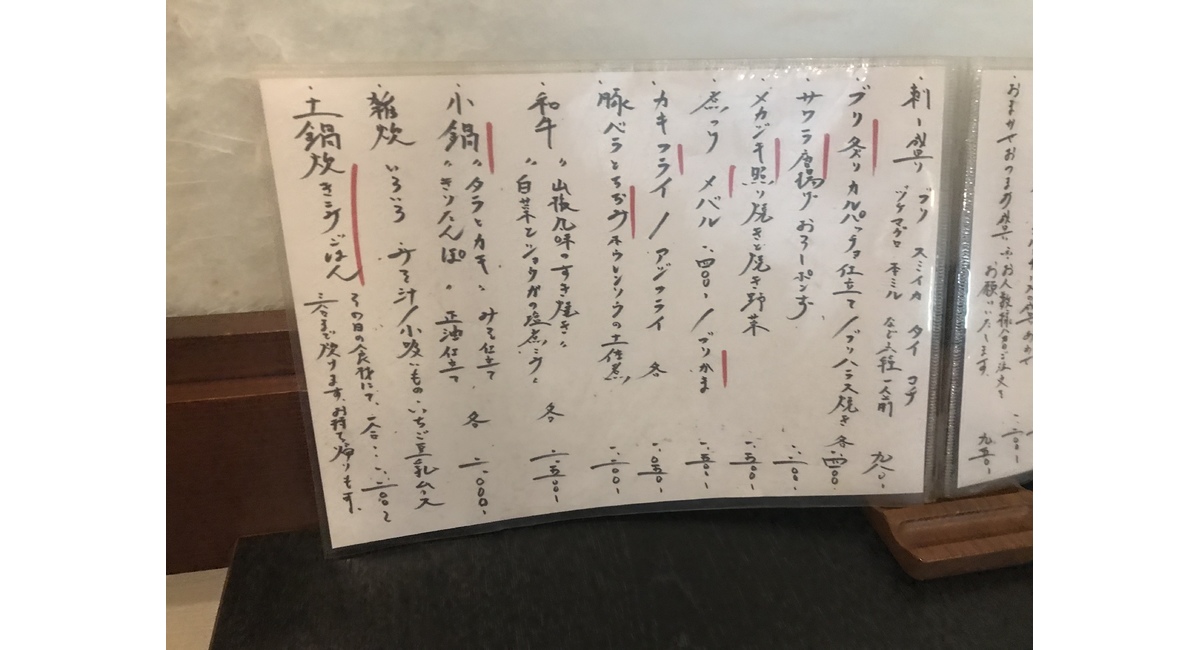 おまかせおつまみ盛
お人数様分ご注文を
お願いいたします。
九五〇、
・刺し盛り ブリ スミイカ タイ コチ
ヅケマグロ 本ミル など五種 一人前 九八〇、
・ブリ炙りカルパッチョ仕立て/ブリハラス焼き 各一、四〇〇
・サワラ唐揚げおろしポンず 一、二〇〇、
・メカジキ照り焼きと焼き野菜 一、五〇〇、
・煮つけ メバル 一、四〇〇、/ブリかま 一、五〇〇、
・カキフライ/アジフライ 各 一、〇五〇、
・豚バラとちぢみホウレンソウの土佐煮 一、二〇〇、
・和牛 〃山椒九味のすき焼き〃
〃白菜とショウガの塩煮こみ〃 各 一、五〇〇、
・小鍋 〃タラとカキ〃 みそ仕立て
〃きりたんぽ〃 正油仕立て 各 一、〇〇〇、
・雑炊 いろいろ みそ汁/小吸いもの いちご豆乳ムース
・土鍋炊きこみごはん
その日の食材にて、一合‥一、二〇〇、
三合まで炊けます。お持ち帰りもす。